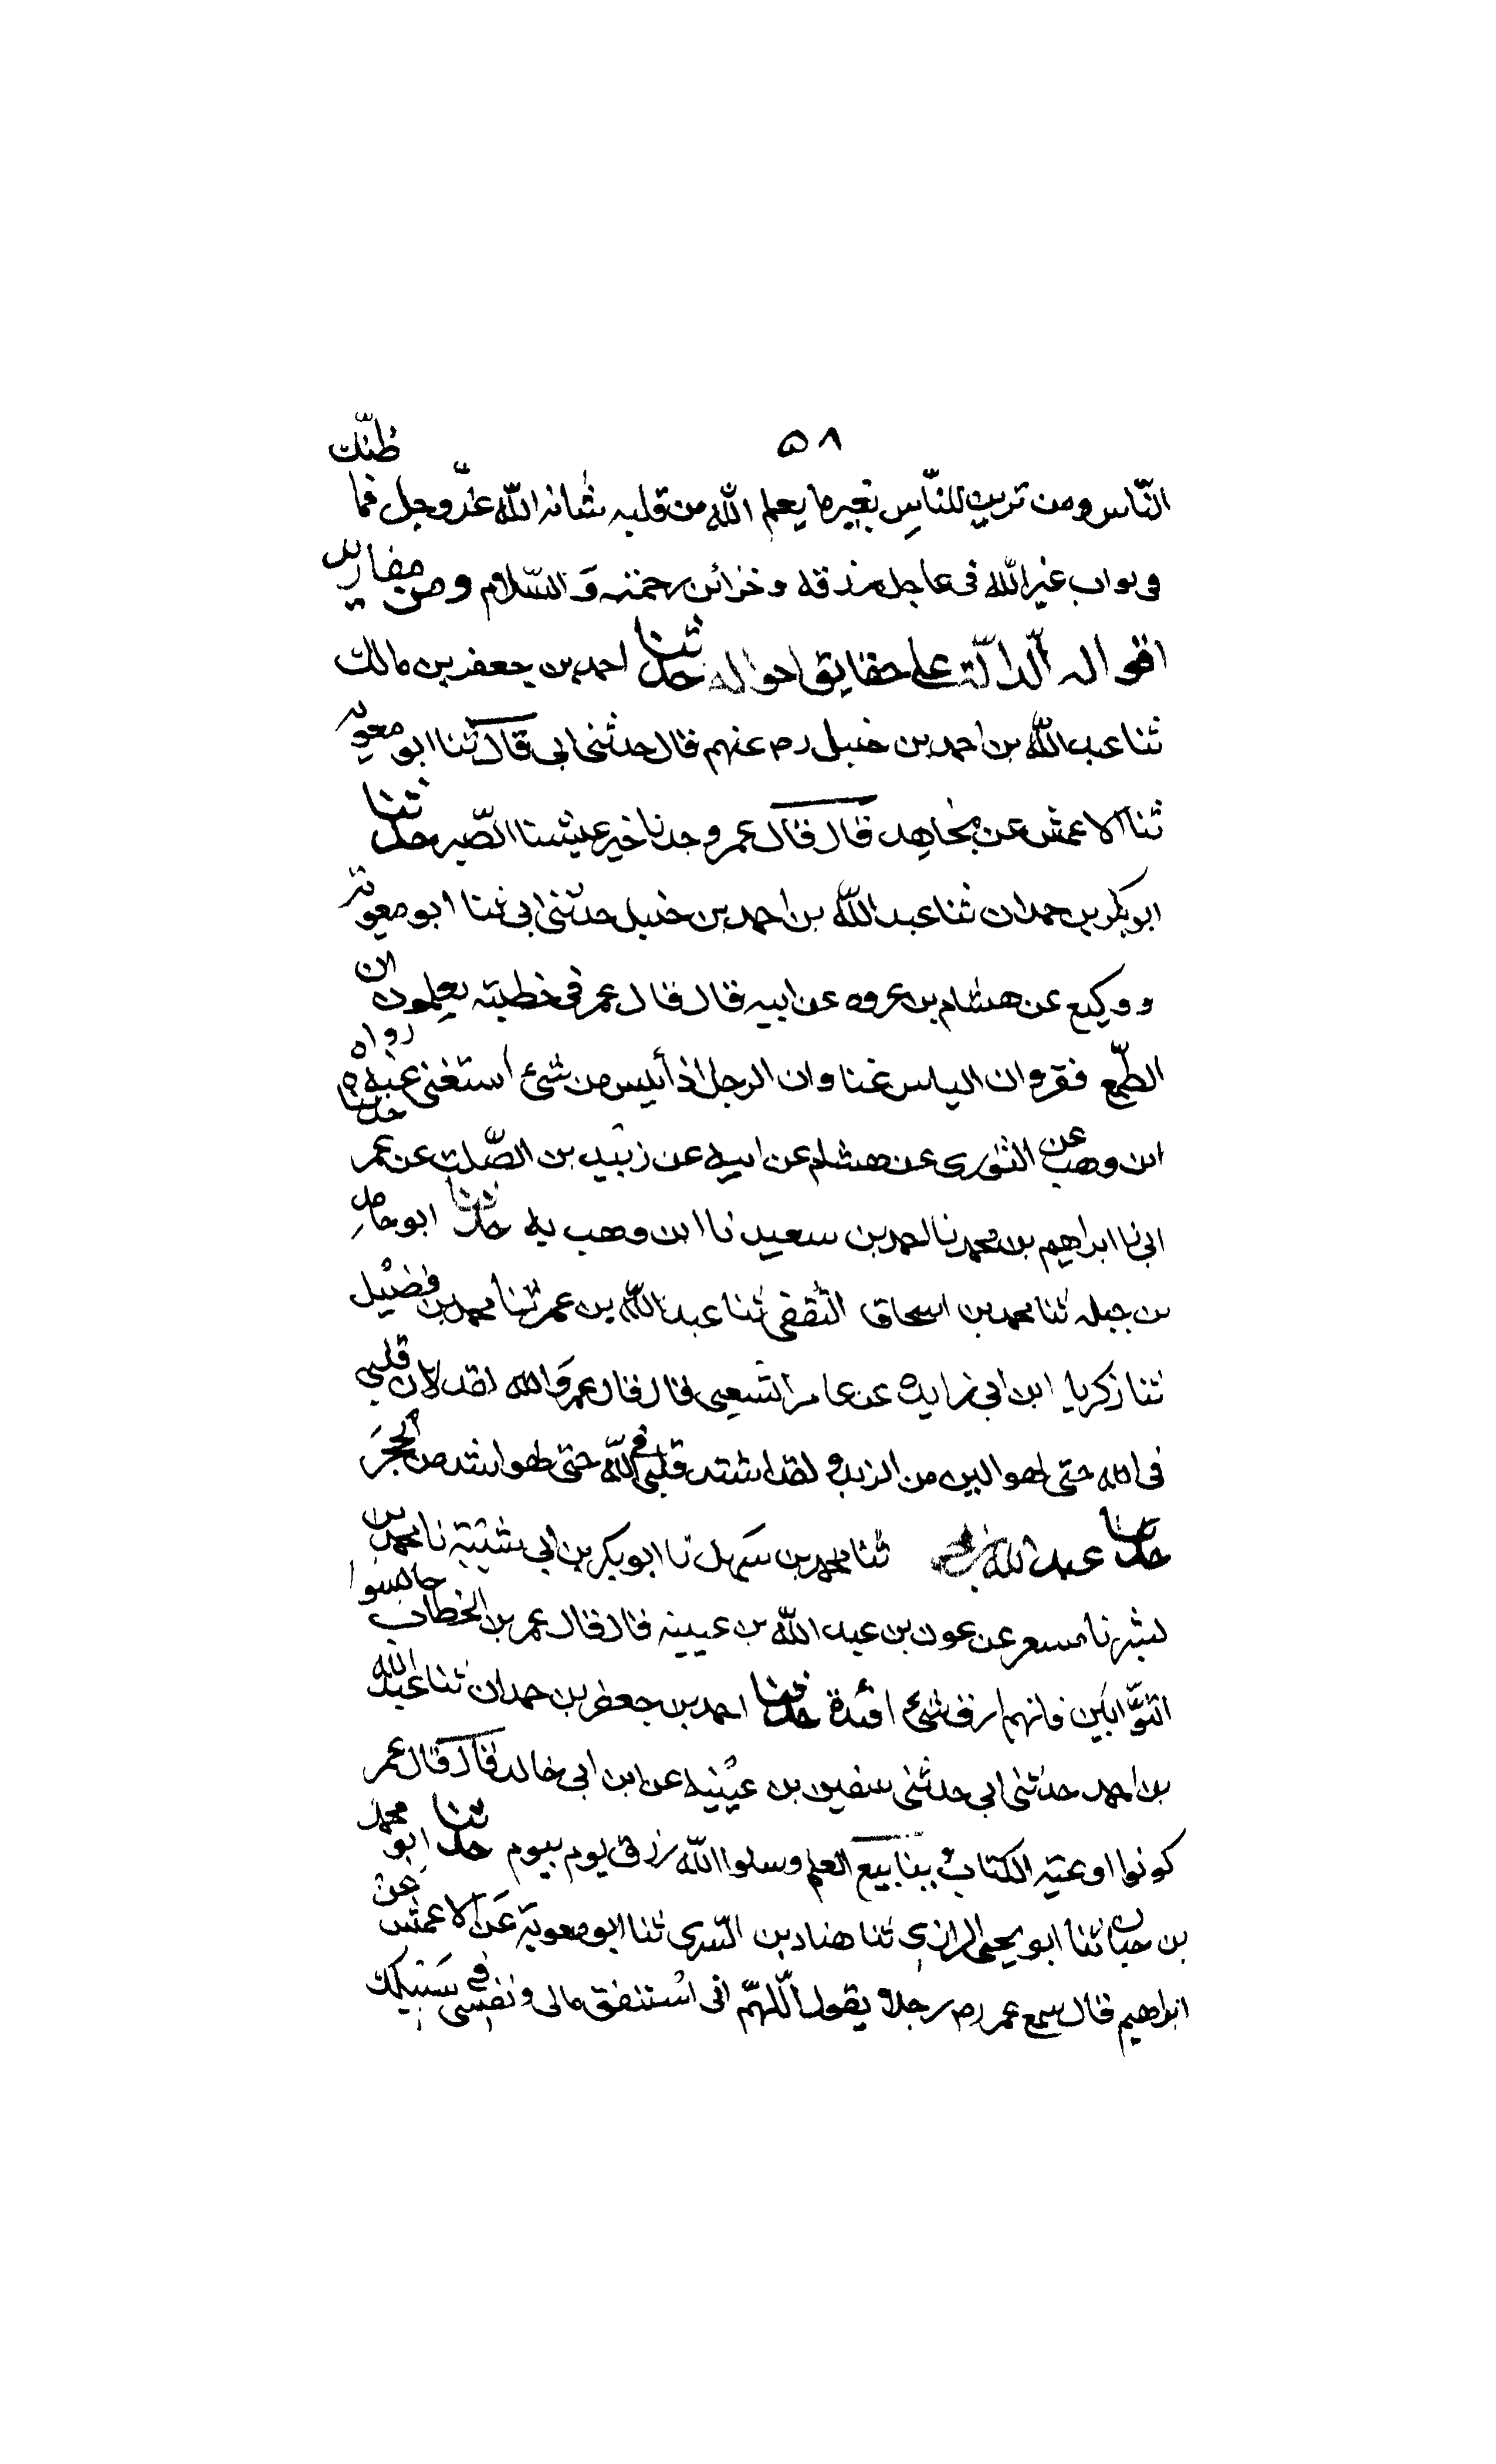 ٥٨
النّاس ومن تزين للنّاس بغير ما يعلم الله من قلبه شانه الله عزّ وجل فما ظنّك
فى ثواب غير الله فى عاجل رزقه وخزائن رحمته وَالسّلام ومن مفاريد
اقواله الدالّة على حقايق احواله حدثنا احمد بن جعفر بن مالك
ثنا عبد الله بن احمد بن حنبل رض عنهم قال حدثنى ابى قال ثنا ابو معويه
ثنا الاعمش عن مجاهد قال قال عمر وجدنا خير عيشنا الصّبر حدثنا
ابو بكر بن حمدان ثنا عبد الله بن احمد بن حنبل حدثنى ابى ثنا ابو معوية
و وكيع عن هشام بن عروه عن ابيه قال قال عمر فى خطبته تعلمون ان
الطّمع فقر وان الياس غنا وان الرجل اذا أيس من شئ استغنى عنه رواه
ابن وهب عن الثورى عن هشام عن ابيه عن زبيد بن الصّلت عن عمر حدثناه
ابى نا ابراهيم بن محمد نا احمد بن سعيد نا ابن وهب به حدثنا ابو حامد
بن جبله ثنا محمد بن اسحاق الثقفى ثنا عبد الله بن عمر ثنا محمد بن فضيل
ثنا زكريا ابن ابى زايده عن عامر الشعبى قال قال عمر وَالله لقد لان قلبى
فى الله حتى لهو الين من الزبد و لقد اشتد قلبى فى الله حتى لهو اشد من الحجرَ
حدثنا عبد الله بن محمد ثنا محمد بن سهل نا ابو بكر بن ابى شيبة نا محمد بن
بشر نا مسعر عن عون بن عبد الله بن عيينه قال قال عمر بن الخطاب جالسوا
التوّابين فانهم ارق شئ افئدة حدثنا احمد بن جعفر بن حمدان ثنا عبد الله
بن احمد حدثنى ابى حدثنى سفين بن عيينه عن ابن ابى خالد قال قال عمر
كونوا اوعية الكتاب ينابيع العلم وسلوا الله رزق يوم بيوم حدثنا ابو محمد
بن حبان ثنا ابو يحيى الرازى ثنا هناد بن السّرى ثنا ابو معوية عَن الاعمش عن
ابراهيم قال سمع عمر رض رجلا يقول اللّهمّ انى استنفق مالى ونفسى فى سبيلك